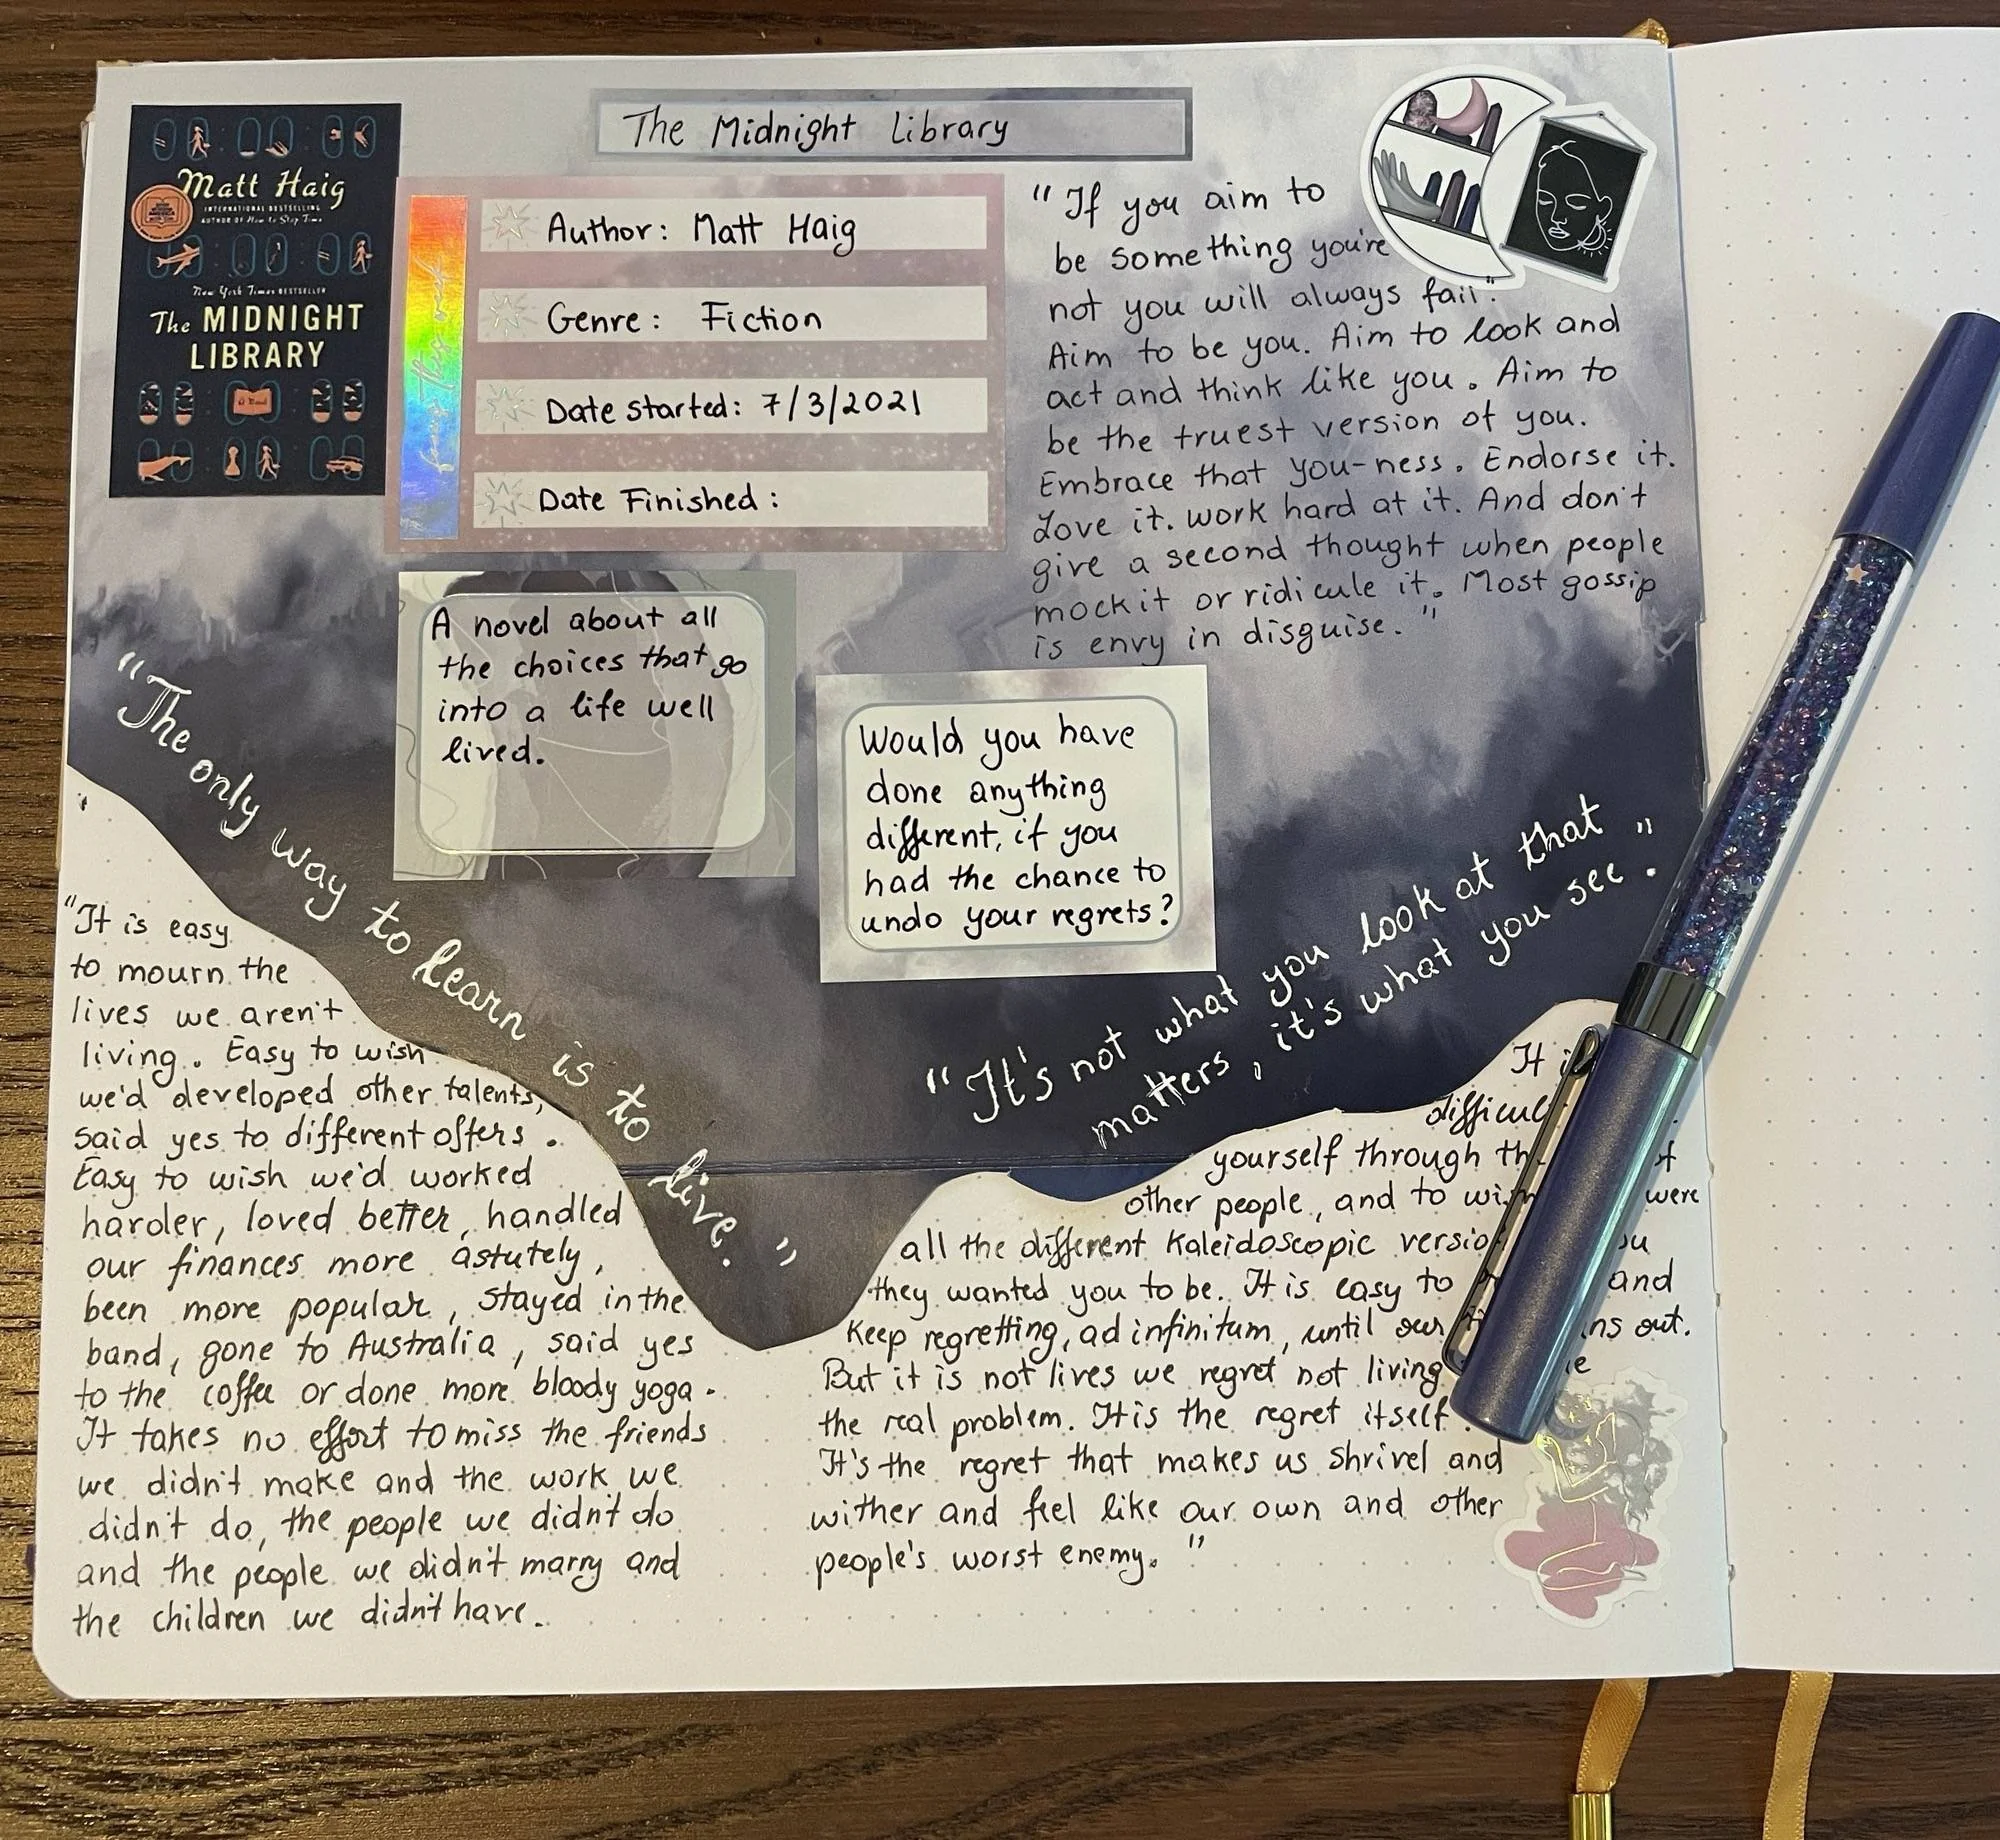 The Midnight Library
Matt Haig
INTERNATIONAL BESTSELLING
AUTHOR OF How to Stop Time
New York Times BESTSELLER
The MIDNIGHT
LIBRARY
a Novel
Author: Matt Haig
Genre: Fiction
Date started: 7/3/2021
Date Finished:
"If you aim to
be something you're
not you will always fail".
Aim to be you. Aim to look and
act and think like you. Aim to
be the truest version of you.
Embrace that you-ness. Endorse it.
Love it. work hard at it. And don't
give a second thought when people
mock it or ridicule it. Most gossip
is envy in disguise."
A novel about all
the choices that go
into a life well
lived.
Would you have
done anything
different, if you
had the chance to
undo your regrets?
"The only way to learn is to live."
"It's not what you look at that
matters, it's what you see."
"It is easy
to mourn the
lives we aren't
living. Easy to wish
we'd developed other talents,
said yes to different offers.
Easy to wish we'd worked
harder, loved better, handled
our finances more astutely,
been more popular, stayed in the
band, gone to Australia, said yes
to the coffee or done more bloody yoga.
It takes no effort to miss the friends
we didn't make and the work we
didn't do, the people we didn't do
and the people we didn't marry and
the children we didn't have.
It
yourself through
other people, and to were
all the different kaleidoscopic
they wanted you to be. It is easy to and
keep regretting, ad infinitum, until our out.
But it is not lives we regret not living
the real problem. It is the regret itself.
It's the regret that makes us shrivel and
wither and feel like our own and other
people's worst enemy."